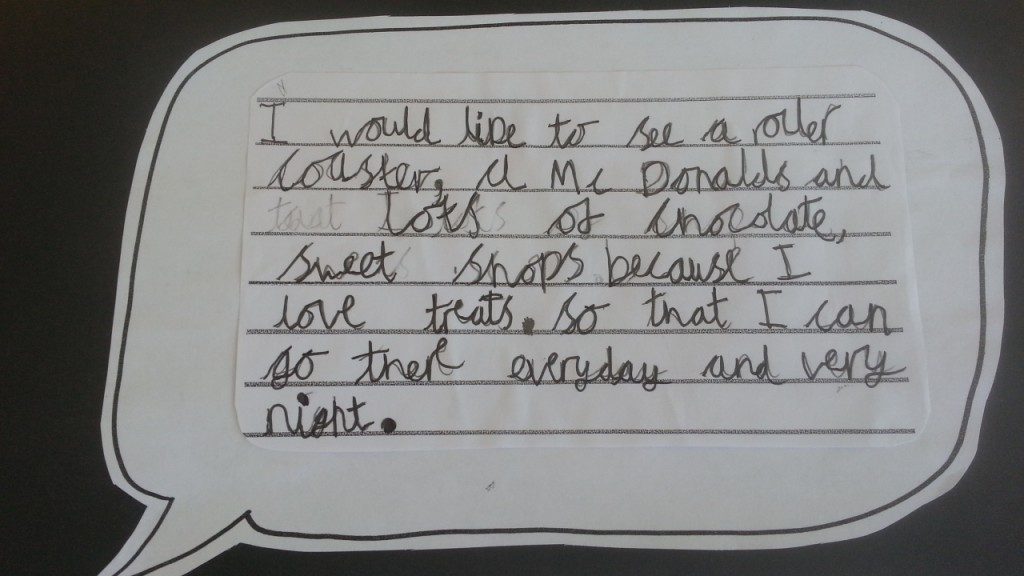 I would like to see a roller
coaster, a Mc Donalds and
lots of chocolate,
sweet shops because I
love treats. so that I can
go there everyday and very
night.